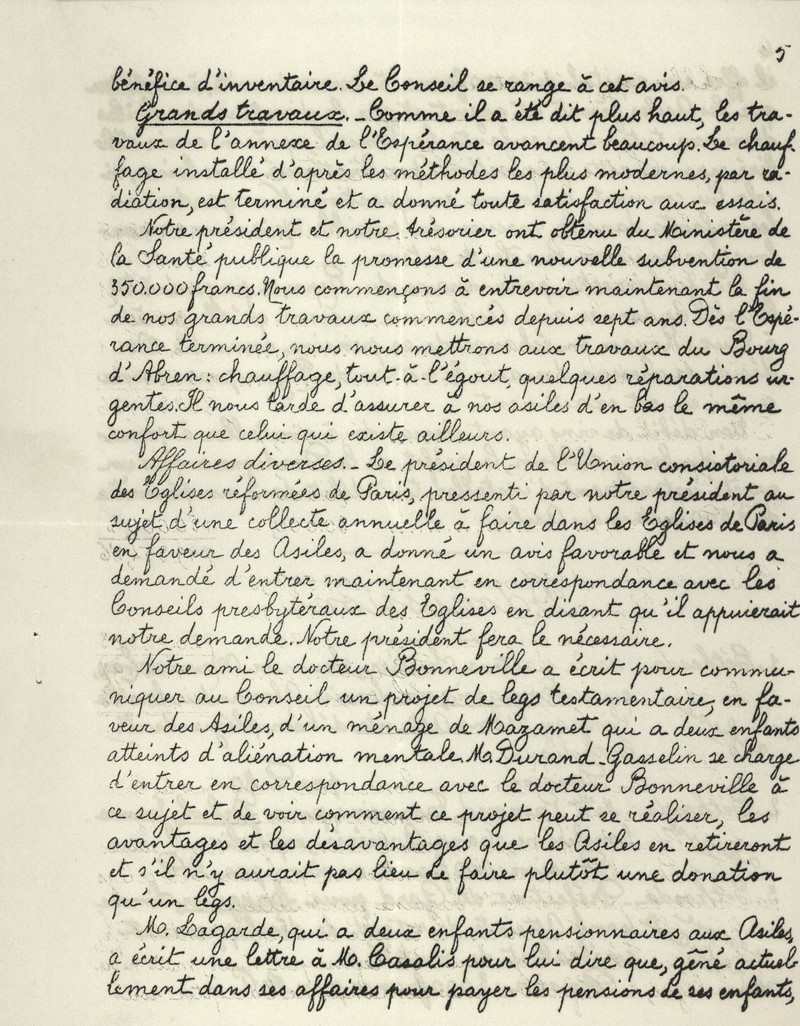 5
bénéfice d'inventaire. Le Conseil se range à cet avis.
Grands travaux. - Comme il a été dit plus haut, les tra-
vaux de l'annexe de l'Espérance avancent beaucoup. Le chauf-
fage installé d'après les méthodes les plus modernes, par ra-
diation, est terminé et a donné toute satisfaction aux essais.
Notre président et notre trésorier ont obtenu du Ministère de
la Santé publique la promesse d'une nouvelle subvention de
350.000 francs. Nous commençons à entrevoir maintenant la fin
de nos grands travaux commencés depuis sept ans. Dès l'Espé-
rance terminée, nous nous mettrons aux travaux du Bourg
d'Abren : chauffage, tout-à-l'égout, quelques réparations ur-
gentes. Il nous tarde d'assurer à nos asiles d'en bas le même
confort que celui qui existe ailleurs.
Affaires diverses. - Le président de l'Union consistoriale
des Eglises réformées de Paris, pressenti par notre président au
sujet d'une collecte annuelle à faire dans les Eglises de Paris
en faveur des Asiles, a donné un avis favorable et nous a
demandé d'entrer maintenant en correspondance avec les
Conseils presbytéraux des Eglises en disant qu'il appuierait
notre demande. Notre président fera le nécessaire.
Notre ami le docteur Bonneville a écrit pour commu-
niquer au Conseil un projet de legs testamentaire, en fa-
veur des Asiles, d'un ménage de Mazamet qui a deux enfants
atteints d'aliénation mentale. M. Durand-Gasselin se charge
d'entrer en correspondance avec le docteur Bonneville à
ce sujet et de voir comment ce projet peut se réaliser, les
avantages et les désavantages que les Asiles en retireront
et s'il n'y aurait pas lieu de faire plutôt une donation
qu'un legs.
M. Lagarde, qui a deux enfants pensionnaires aux Asiles,
a écrit une lettre à M. Casalis pour lui dire que, gêné actuel-
lement dans ses affaires pour payer les pensions de ses enfants,